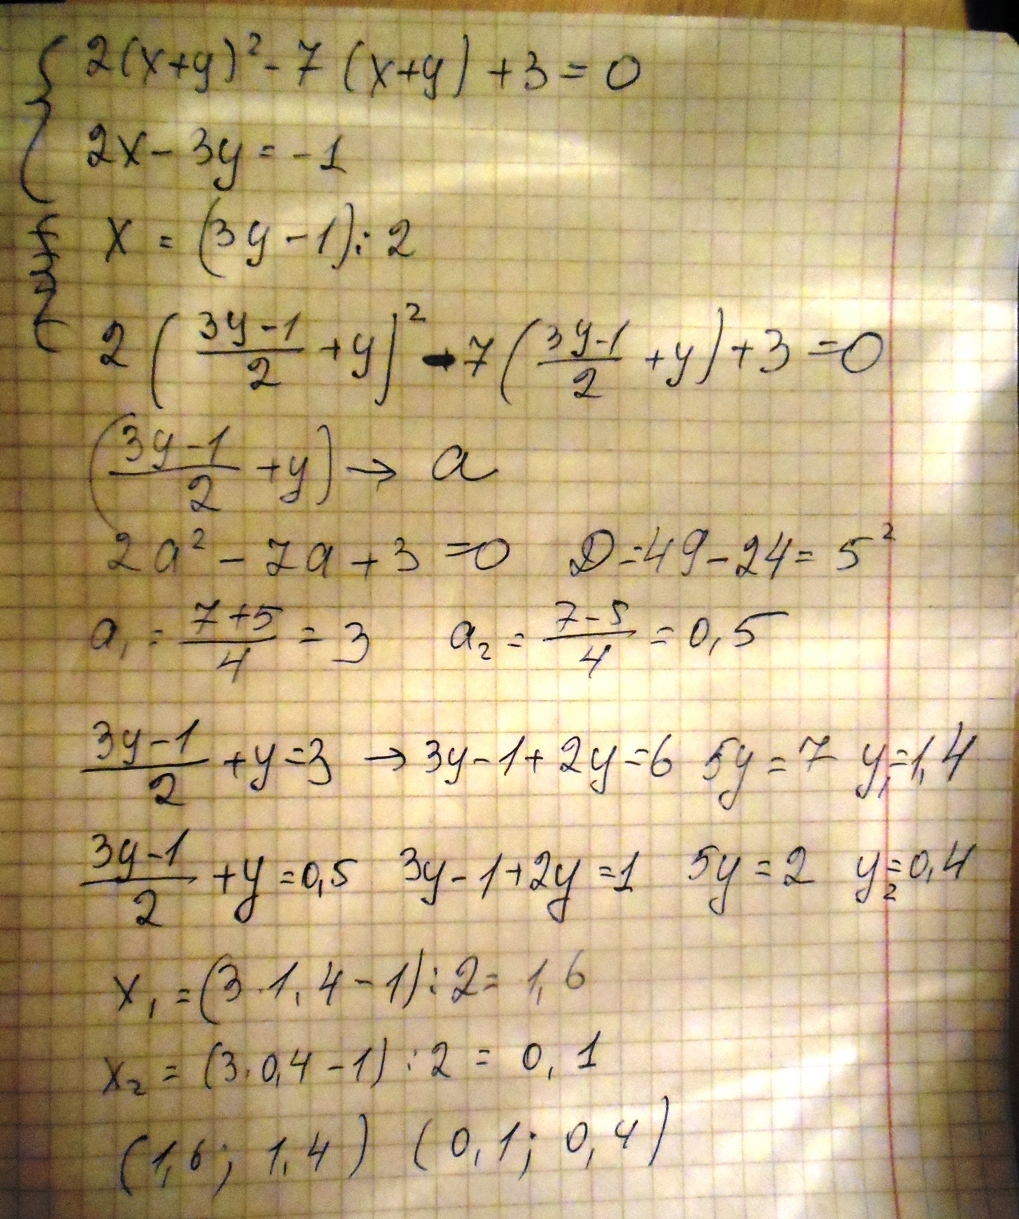 2(x+y)² - 7(x+y) + 3 = 0
2x - 3y = -1
x = (3y - 1) : 2
2((3y-1)/2 + y)² - 7((3y-1)/2 + y) + 3 = 0
((3y-1)/2 + y) → a
2a² - 7a + 3 = 0 D = 49 - 24 = 5²
a₁ = (7+5)/4 = 3 a₂ = (7-5)/4 = 0,5
(3y-1)/2 + y = 3 → 3y - 1 + 2y = 6 5y = 7 y₁ = 1,4
(3y-1)/2 + y = 0,5 3y - 1 + 2y = 1 5y = 2 y₂ = 0,4
x₁ = (3·1,4 - 1) : 2 = 1,6
x₂ = (3·0,4 - 1) : 2 = 0,1
(1,6; 1,4) (0,1; 0,4)